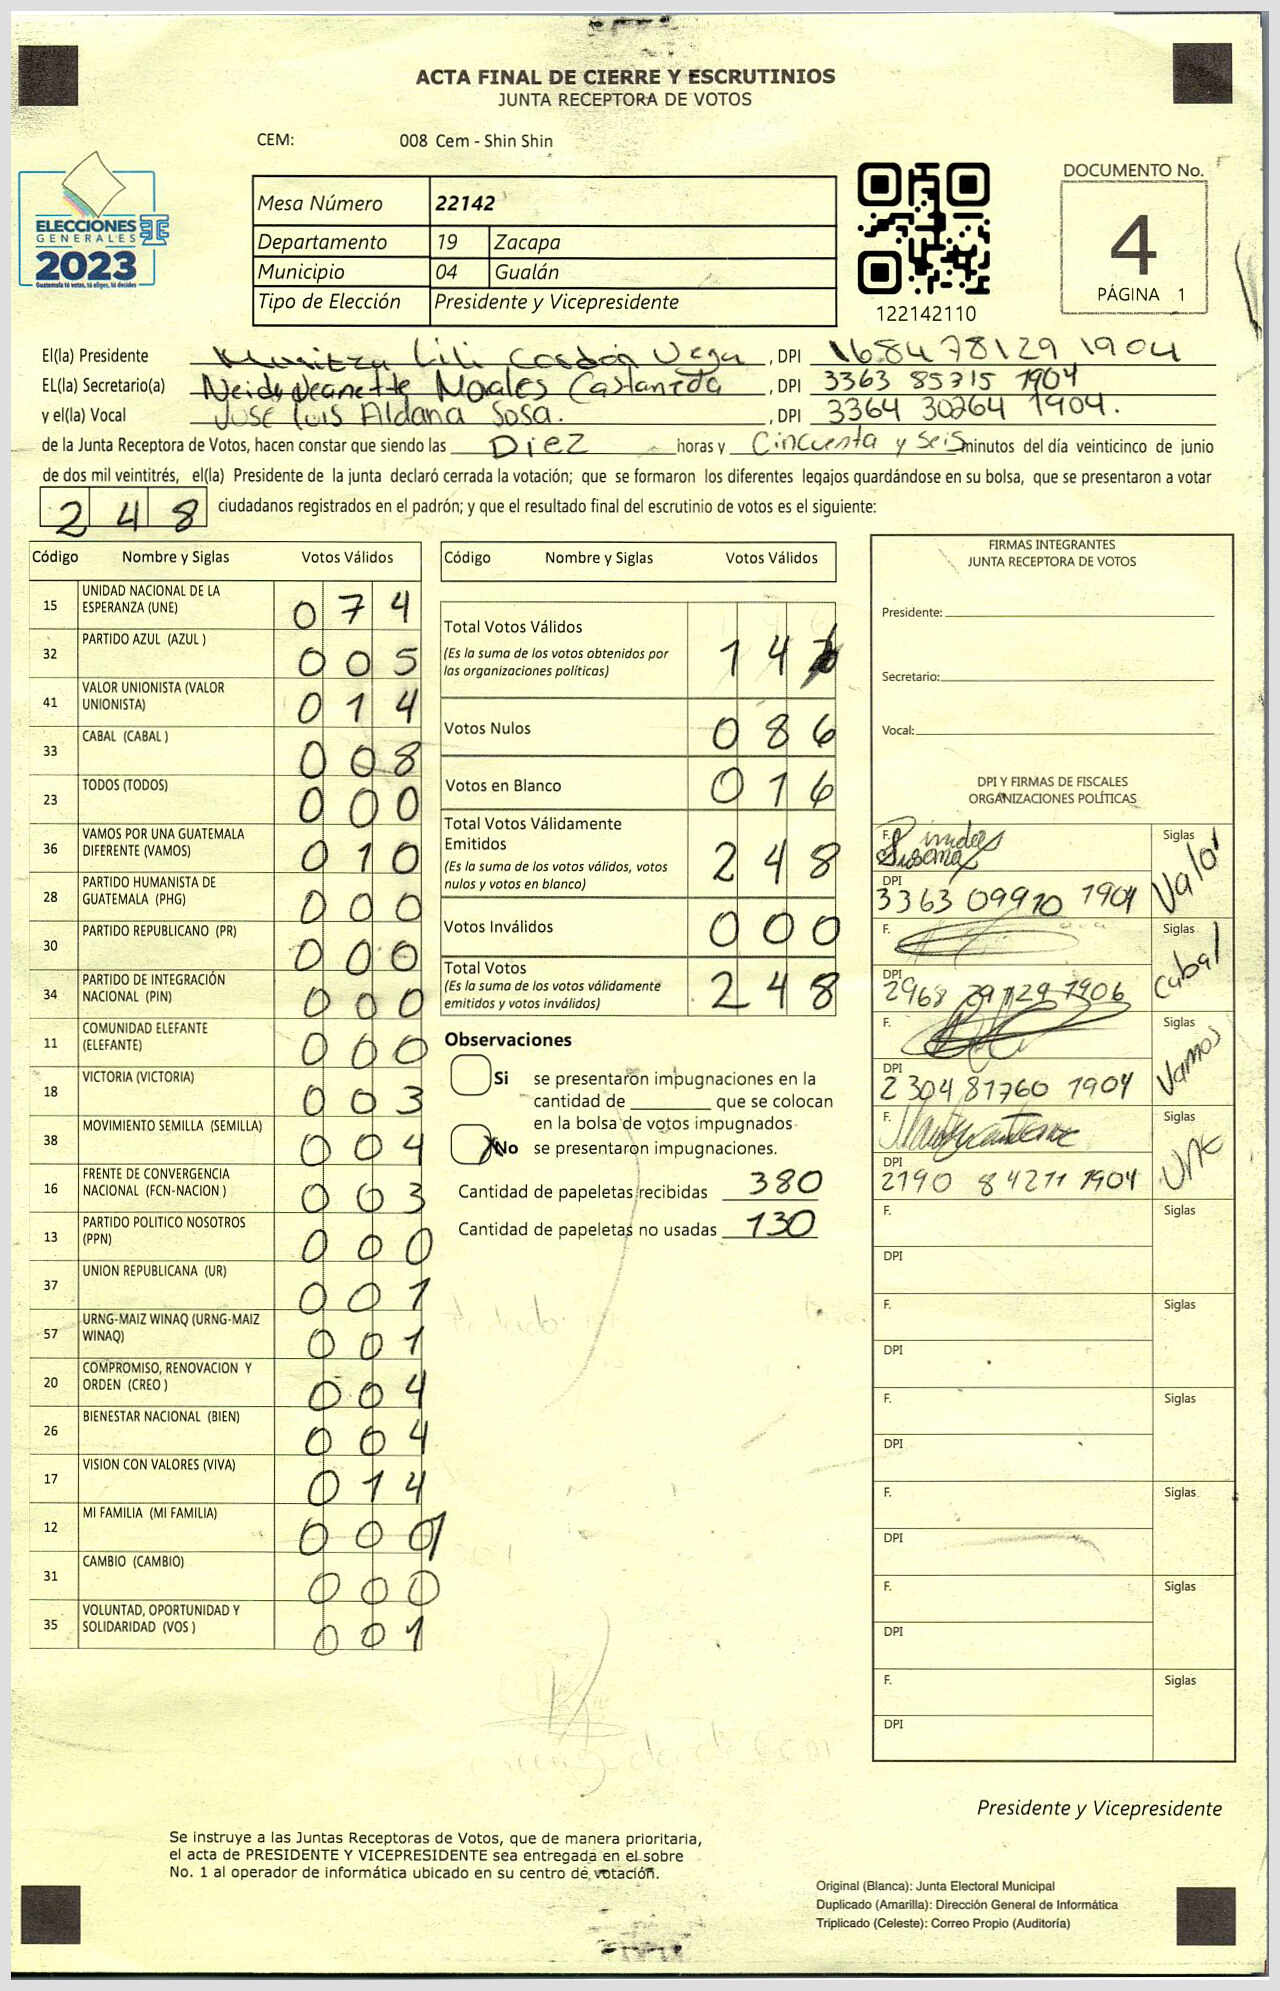 ACTA FINAL DE CIERRE Y ESCRUTINIOS
JUNTA RECEPTORA DE VOTOS
CEM: 008 Cem - Shin Shin
ELECCIONES
GENERALES
2023
Guatemala tú votas, tú eliges, tú decides
Mesa Número 22142
Departamento 19 Zacapa
Municipio 04 Gualán
Tipo de Elección Presidente y Vicepresidente
122142110
DOCUMENTO No.
4
PÁGINA 1
El(la) Presidente Lili Cordón Vega , DPI 1684 78129 1904
EL(la) Secretario(a) Neidy Jeanette Castaneda , DPI 3363 85315 1904
y el(la) Vocal José Luis Aldana Sosa. , DPI 3364 30264 1904.
de la Junta Receptora de Votos, hacen constar que siendo las Diez horas y Cincuenta y seis minutos del día veinticinco de junio
de dos mil veintitrés, el(la) Presidente de la junta declaró cerrada la votación; que se formaron los diferentes legajos guardándose en su bolsa, que se presentaron a votar
248 ciudadanos registrados en el padrón; y que el resultado final del escrutinio de votos es el siguiente:
Código Nombre y Siglas Votos Válidos
15 UNIDAD NACIONAL DE LA ESPERANZA (UNE) 074
32 PARTIDO AZUL (AZUL ) 005
41 VALOR UNIONISTA (VALOR UNIONISTA) 014
33 CABAL (CABAL ) 008
23 TODOS (TODOS) 000
36 VAMOS POR UNA GUATEMALA DIFERENTE (VAMOS) 010
28 PARTIDO HUMANISTA DE GUATEMALA (PHG) 000
30 PARTIDO REPUBLICANO (PR) 000
34 PARTIDO DE INTEGRACIÓN NACIONAL (PIN) 000
11 COMUNIDAD ELEFANTE (ELEFANTE) 000
18 VICTORIA (VICTORIA) 003
38 MOVIMIENTO SEMILLA (SEMILLA) 004
16 FRENTE DE CONVERGENCIA NACIONAL (FCN-NACION ) 003
13 PARTIDO POLITICO NOSOTROS (PPN) 000
37 UNION REPUBLICANA (UR) 001
57 URNG-MAIZ WINAQ (URNG-MAIZ WINAQ) 001
20 COMPROMISO, RENOVACION Y ORDEN (CREO ) 004
26 BIENESTAR NACIONAL (BIEN) 004
17 VISION CON VALORES (VIVA) 014
12 MI FAMILIA (MI FAMILIA) 00
31 CAMBIO (CAMBIO) 000
35 VOLUNTAD, OPORTUNIDAD Y SOLIDARIDAD (VOS ) 001
Código Nombre y Siglas Votos Válidos
Total Votos Válidos 146
(Es la suma de los votos obtenidos por
las organizaciones políticas)
Votos Nulos 086
Votos en Blanco 016
Total Votos Válidamente
Emitidos 248
(Es la suma de los votos válidos, votos
nulos y votos en blanco)
Votos Inválidos 000
Total Votos 248
(Es la suma de los votos válidamente
emitidos y votos inválidos)
Observaciones
Si se presentaron impugnaciones en la
cantidad de ________ que se colocan
en la bolsa de votos impugnados
X No se presentaron impugnaciones.
Cantidad de papeletas recibidas 380
Cantidad de papeletas no usadas 130
FIRMAS INTEGRANTES
JUNTA RECEPTORA DE VOTOS
Presidente:
Secretario:
Vocal:
DPI Y FIRMAS DE FISCALES
ORGANIZACIONES POLÍTICAS
F. Siglas Valor
DPI 3363 09910 1904
F. Siglas Cabal
DPI 2968 29129 1906
F. Siglas Vamos
DPI 2304 81760 1904
F. Siglas UNE
DPI 2190 84211 1904
F. Siglas
DPI
F. Siglas
DPI
F. Siglas
DPI
F. Siglas
DPI
F. Siglas
DPI
F. Siglas
DPI
Presidente y Vicepresidente
Se instruye a las Juntas Receptoras de Votos, que de manera prioritaria,
el acta de PRESIDENTE Y VICEPRESIDENTE sea entregada en el sobre
No. 1 al operador de informática ubicado en su centro de votación.
Original (Blanca): Junta Electoral Municipal
Duplicado (Amarilla): Dirección General de Informática
Triplicado (Celeste): Correo Propio (Auditoría)